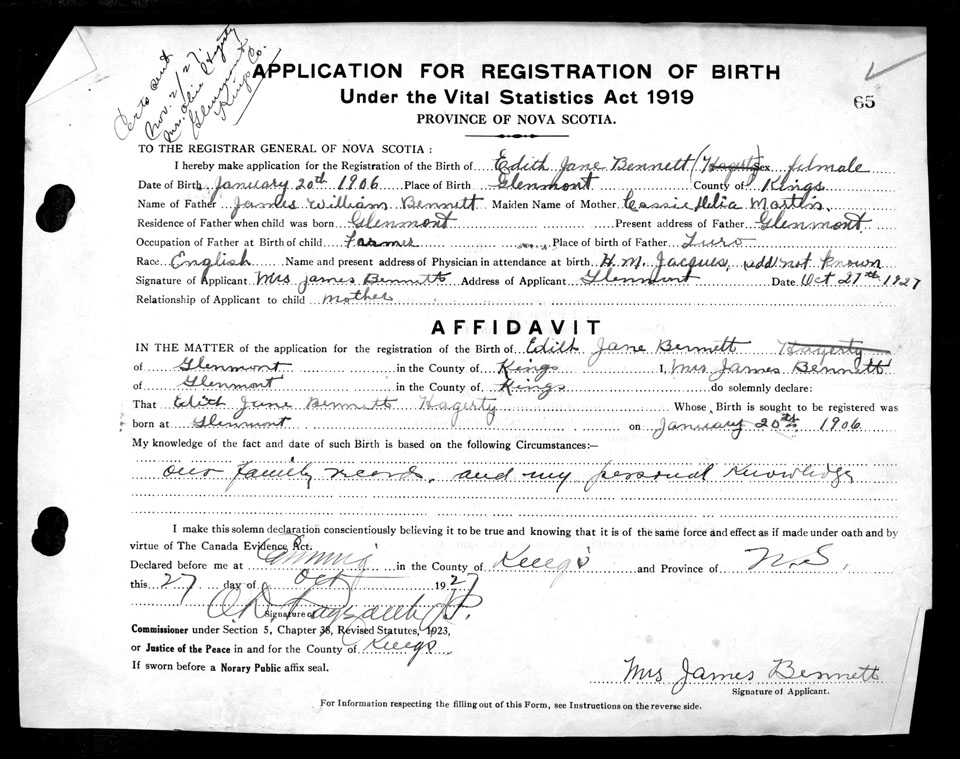 Certs sent
Nov. 2/27
Mrs. Hagerty
Glenmont
Kings Co.
APPLICATION FOR REGISTRATION OF BIRTH
Under the Vital Statistics Act 1919
65
PROVINCE OF NOVA SCOTIA.
TO THE REGISTRAR GENERAL OF NOVA SCOTIA :
I hereby make application for the Registration of the Birth of Edith Jane Bennett (Hagerty) Sex female
Date of Birth January 20th 1906 Place of Birth Glenmont County of Kings
Name of Father James William Bennett Maiden Name of Mother Cassie Martin
Residence of Father when child was born Glenmont Present address of Father Glenmont
Occupation of Father at Birth of child Farmer Place of birth of Father Turo
Race English Name and present address of Physician in attendance at birth H. M. Jacques, add not known
Signature of Applicant Mrs James Bennett Address of Applicant Glenmont Date Oct 27th 1927
Relationship of Applicant to child mother
AFFIDAVIT
IN THE MATTER of the application for the registration of the Birth of Edith Jane Bennett Hagerty
of Glenmont in the County of Kings I, Mrs James Bennett
of Glenmont in the County of Kings do solemnly declare:
That Edith Jane Bennett Hagerty Whose Birth is sought to be registered was
born at Glenmont on January 20th 1906
My knowledge of the fact and date of such Birth is based on the following Circumstances:—
our family record, and my personal Knowledge
I make this solemn declaration conscientiously believing it to be true and knowing that it is of the same force and effect as if made under oath and by
virtue of The Canada Evidence Act.
Declared before me at Canning in the County of Kings and Province of N.S.
this 27 day of Oct 1927
J.P.
Signature of
Commissioner under Section 5, Chapter 38, Revised Statutes, 1923,
or Justice of the Peace in and for the County of Kings
If sworn before a Norary Public affix seal.
Mrs James Bennett
Signature of Applicant.
For Information respecting the filling out of this Form, see Instructions on the reverse side.